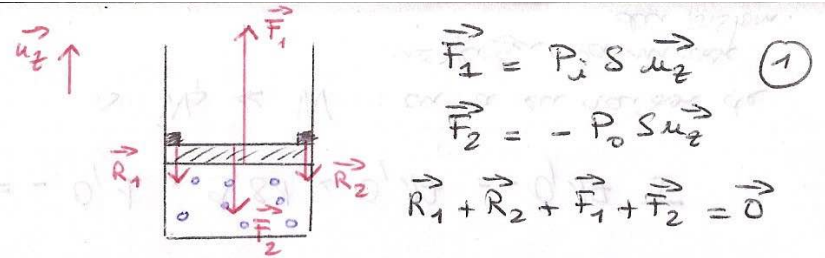 $\vec{u_z}$
$\vec{F_1}$
$\vec{R_1}$
$\vec{R_2}$
$\vec{F_2}$
$\vec{F_1} = P_i S \vec{u_z}$ ①
$\vec{F_2} = - P_0 S \vec{u_z}$
$\vec{R_1} + \vec{R_2} + \vec{F_1} + \vec{F_2} = \vec{0}$